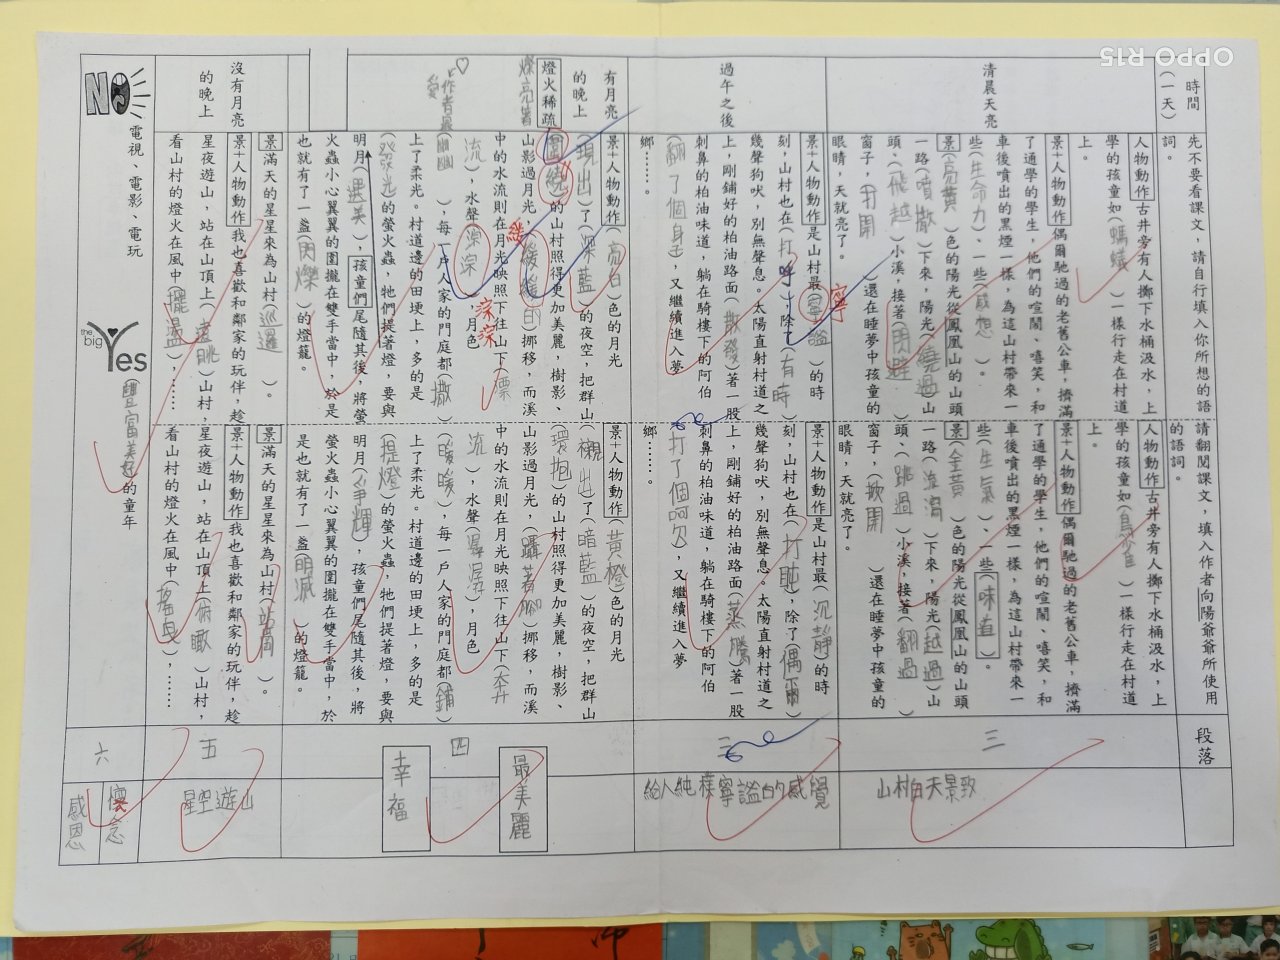 OPPO R15
時間
(一天)
先不要看課文，請自行填入你所想的語
詞。
請翻閱課文，填入作者向陽爺爺所使用
的語詞。
段落
清晨天亮
人物動作 古井旁有人擲下水桶汲水，上
學的孩童如(螞蟻)一樣行走在村道
上。
景+人物動作 偶爾馳過的老舊公車，擠滿
了通學的學生，他們的喧鬧、嘻笑，和
車後噴出的黑煙一樣，為這山村帶來一
些(生命力)、一些(感想)。
景(亮黃)色的陽光從鳳凰山的山頭
一路(噴撒)下來，陽光(繞過)山
頭、(飛越)小溪，接著(閃避)
窗子，(打開)還在睡夢中孩童的
眼睛，天就亮了。
人物動作 古井旁有人擲下水桶汲水，上
學的孩童如(鳥雀)一樣行走在村道
上。
景+人物動作 偶爾馳過的老舊公車，擠滿
了通學的學生，他們的喧鬧、嘻笑，和
車後噴出的黑煙一樣，為這山村帶來一
些(生氣)、一些(味道)。
景(金黃)色的陽光從鳳凰山的山頭
一路(流瀉)下來，陽光(越過)山
頭、(跳過)小溪，接著(翻過)
窗子，(掀開)還在睡夢中孩童的
眼睛，天就亮了。
三
山村白天景致
過午之後
景+人物動作 是山村最(寧謐)的時
寧
刻，山村也在(打呼)，除了(有時)
幾聲狗吠，別無聲息。太陽直射村道之
上，剛鋪好的柏油路面(散發)著一股
刺鼻的柏油味道，躺在騎樓下的阿伯
(翻了個身)，又繼續進入夢
鄉……。
景+人物動作 是山村最(沉靜)的時
刻，山村也在(打盹)，除了(偶爾)
幾聲狗吠，別無聲息。太陽直射村道之
上，剛鋪好的柏油路面(蒸騰)著一股
刺鼻的柏油味道，躺在騎樓下的阿伯
(打了個呵欠)，又繼續進入夢
鄉……。
三
給人純樸寧謐的感覺
有月亮
的晚上
燈火稀疏
燦亮著
作者最
愛
景+人物動作(亮白)色的月光
(現出)了(深藍)的夜空，把群山
(圍繞)的山村照得更加美麗，樹影、
山影過月光，(緩緩的)挪移，而溪
緩
中的水流則在月光映照下往山下(漂
流)，水聲(淙淙)，月色
淙淙
(幽幽)，每一戶人家的門庭都(撒)
上了柔光。村道邊的田埂上，多的是
(發光)的螢火蟲，牠們提著燈，要與
明月(選美)，孩童們尾隨其後，將螢
火蟲小心翼翼的圍攏在雙手當中，於是
也就有了一盞(閃爍)的燈籠。
景+人物動作(黃橙)色的月光
(襯出)了(暗藍)的夜空，把群山
(環抱)的山村照得更加美麗，樹影、
山影過月光，(躡著腳)挪移，而溪
中的水流則在月光映照下往山下(奔
流)，水聲(潺潺)，月色
(曖曖)，每一戶人家的門庭都(鋪)
上了柔光。村道邊的田埂上，多的是
(提燈)的螢火蟲，牠們提著燈，要與
明月(爭輝)，孩童們尾隨其後，將
螢火蟲小心翼翼的圍攏在雙手當中，於
是也就有了一盞(明滅)的燈籠。
四
最美麗
幸福
沒有月亮
的晚上
景 滿天的星星來為山村(巡邏)。
景+人物動作 我也喜歡和鄰家的玩伴，趁
星夜遊山，站在山頂上(遠眺)山村，
看山村的燈火在風中(擺盪)，……
景 滿天的星星來為山村(站崗)。
景+人物動作 我也喜歡和鄰家的玩伴，趁
星夜遊山，站在山頂上(俯瞰)山村，
看山村的燈火在風中(搖曳)，……
五
星空遊山
NO
電視、電影、電玩
the big Yes
豐富美好的童年
六
懷念
感恩